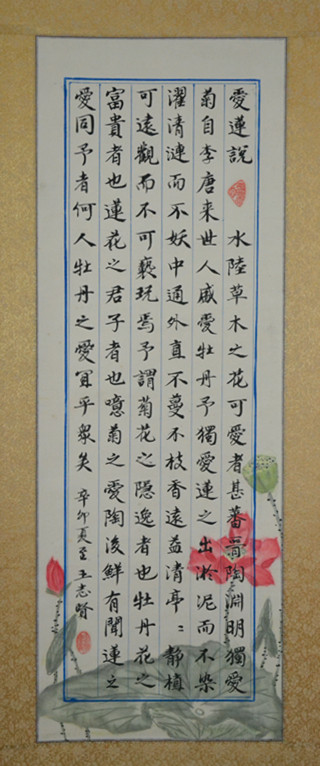 愛蓮說 水陸草木之花可愛者甚蕃晉陶淵明獨愛
菊自李唐来世人盛愛牡丹予獨愛蓮之出淤泥而不染
濯清漣而不妖中通外直不蔓不枝香遠益清亭:静植
可遠觀而不可褻玩焉予謂菊花之隐逸者也牡丹花之
富貴者也蓮花之君子者也噫菊之愛陶後鮮有聞蓮之
愛同予者何人牡丹之愛宜乎衆矣 辛卯夏至 王志賢